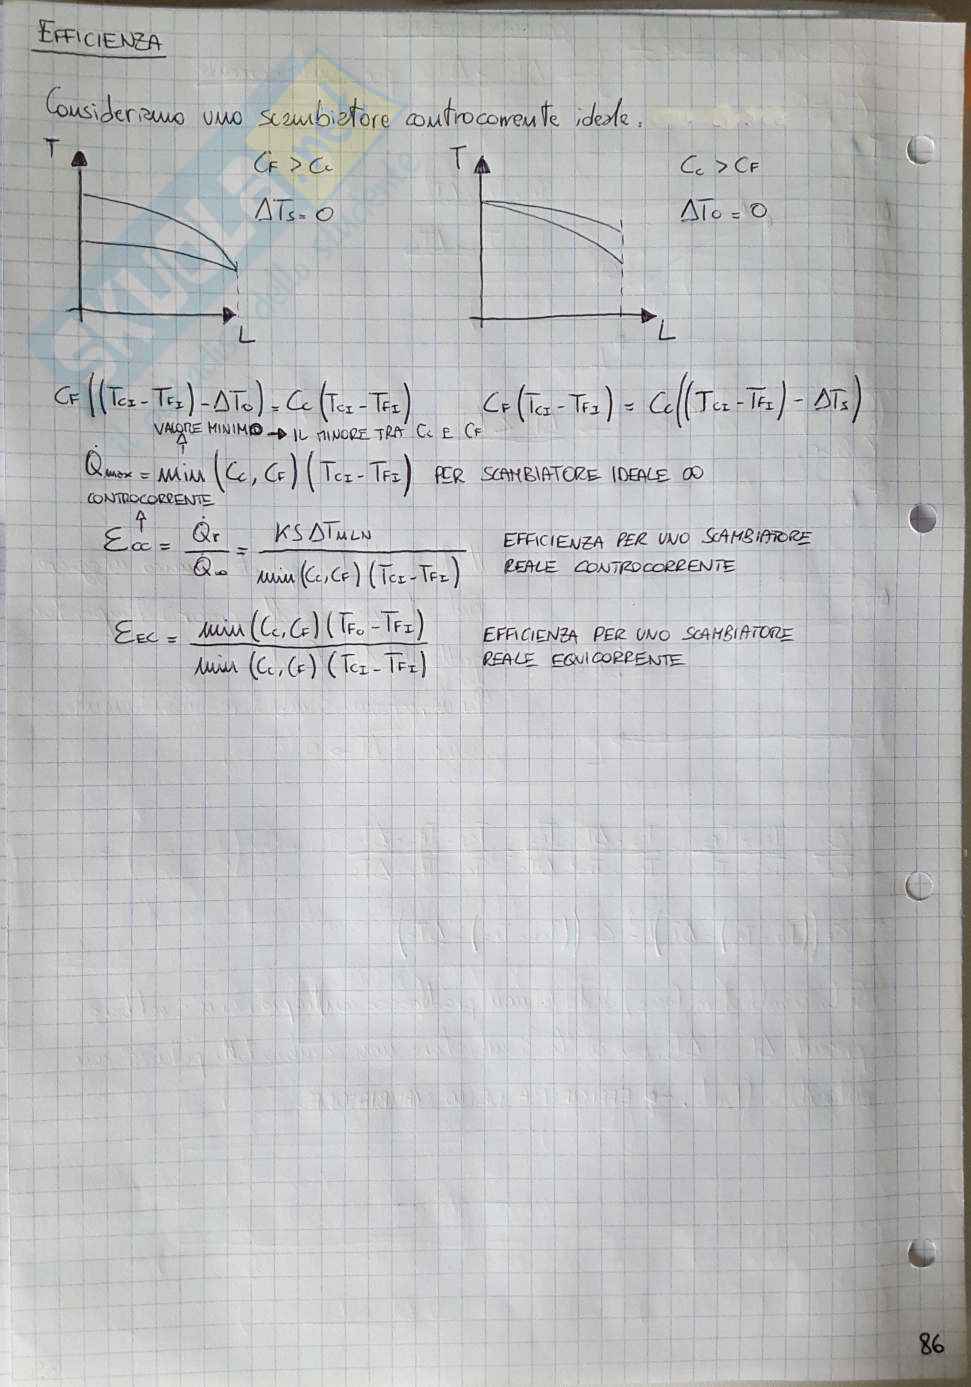 EFFICIENZA
Consideriamo uno scambiatore controcorrente ideale.
T
CF > Cc
ΔTs = 0
L
T
Cc > CF
ΔTo = 0
L
CF((TCI - TFI) - ΔTo) = Cc(TCI - TFI)
CF(TCI - TFI) = Cc((TCI - TFI) - ΔTs)
VALORE MINIMO → IL MINORE TRA Cc E CF
Q̇max = min(Cc, CF)(TCI - TFI) PER SCAMBIATORE IDEALE ∞
CONTROCORRENTE
εCC = Q̇r / Q̇∞ = KSΔTMLN / min(Cc, CF)(TCI - TFI) EFFICIENZA PER UNO SCAMBIATORE
REALE CONTROCORRENTE
εEC = min(Cc, CF)(TFO - TFI) / min(Cc, CF)(TCI - TFI) EFFICIENZA PER UNO SCAMBIATORE
REALE EQUICORRENTE
86
SKUOLA.net